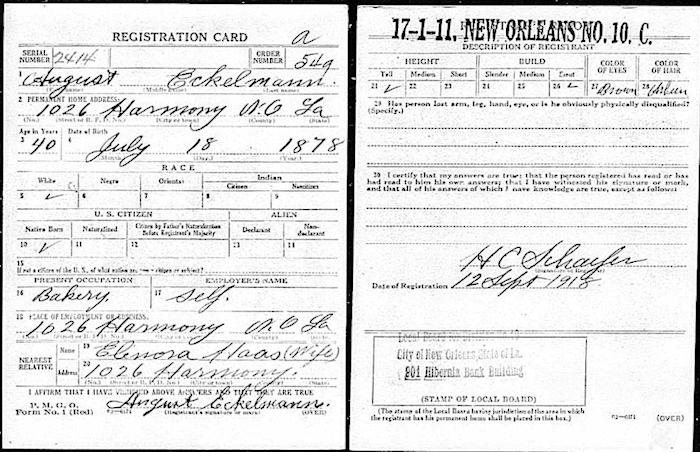 REGISTRATION CARD a
SERIAL NUMBER 2414 ORDER NUMBER 549
1 August Eckelmann
(First name) (Middle name) (Last name)
2 PERMANENT HOME ADDRESS:
1026 Harmony N.O La
(No.) (Street or R. F. D. No.) (City or town) (County) (State)
Age in Years Date of Birth
3 40 4 July 18 1878
(Month.) (Day.) (Year.)
RACE
White Negro Oriental Indian
Citizen Noncitizen
5 ✓ 6 7 8 9
U. S. CITIZEN ALIEN
Native Born Naturalized Citizen by Father's Naturalization Before Registrant's Majority Declarant Non-declarant
10 ✓ 11 12 13 14
15
If not a citizen of the U. S., of what nation are you a citizen or subject?
PRESENT OCCUPATION EMPLOYER'S NAME
16 Bakery 17 Self.
18 PLACE OF EMPLOYMENT OR BUSINESS:
1026 Harmony N.O La
(No.) (Street or R. F. D. No.) (City or town) (County) (State)
NEAREST RELATIVE
Name 19 Elenora Haas (Wife)
Address 20 1026 Harmony.
(No.) (Street or R. F. D. No.) (City or town) (County) (State)
I AFFIRM THAT I HAVE VERIFIED ABOVE ANSWERS AND THAT THEY ARE TRUE
P. M. G. O.
Form No. 1 (Red) August Eckelmann.
(Registrant's signature or mark) (OVER)
17-1-11. NEW ORLEANS NO. 10. C.
DESCRIPTION OF REGISTRANT
HEIGHT BUILD COLOR OF EYES COLOR OF HAIR
Tall Medium Short Slender Medium Stout
21 ✓ 22 23 24 25 26 ✓ 27 Brown 28
29 Has person lost arm, leg, hand, eye, or is he obviously physically disqualified?
(Specify.)
30 I certify that my answers are true; that the person registered has read or has
had read to him his own answers; that I have witnessed his signature or mark,
and that all of his answers of which I have knowledge are true, except as follows:
H C Schaefer
(Signature of Registrar)
Date of Registration 12 Sept 1918
Local Board
City of New Orleans, State of La.
801 Hibernia Bank Building
(STAMP OF LOCAL BOARD)
(The stamp of the Local Board having jurisdiction of the area in which
the registrant has his permanent home shall be placed in this box.)
(OVER)